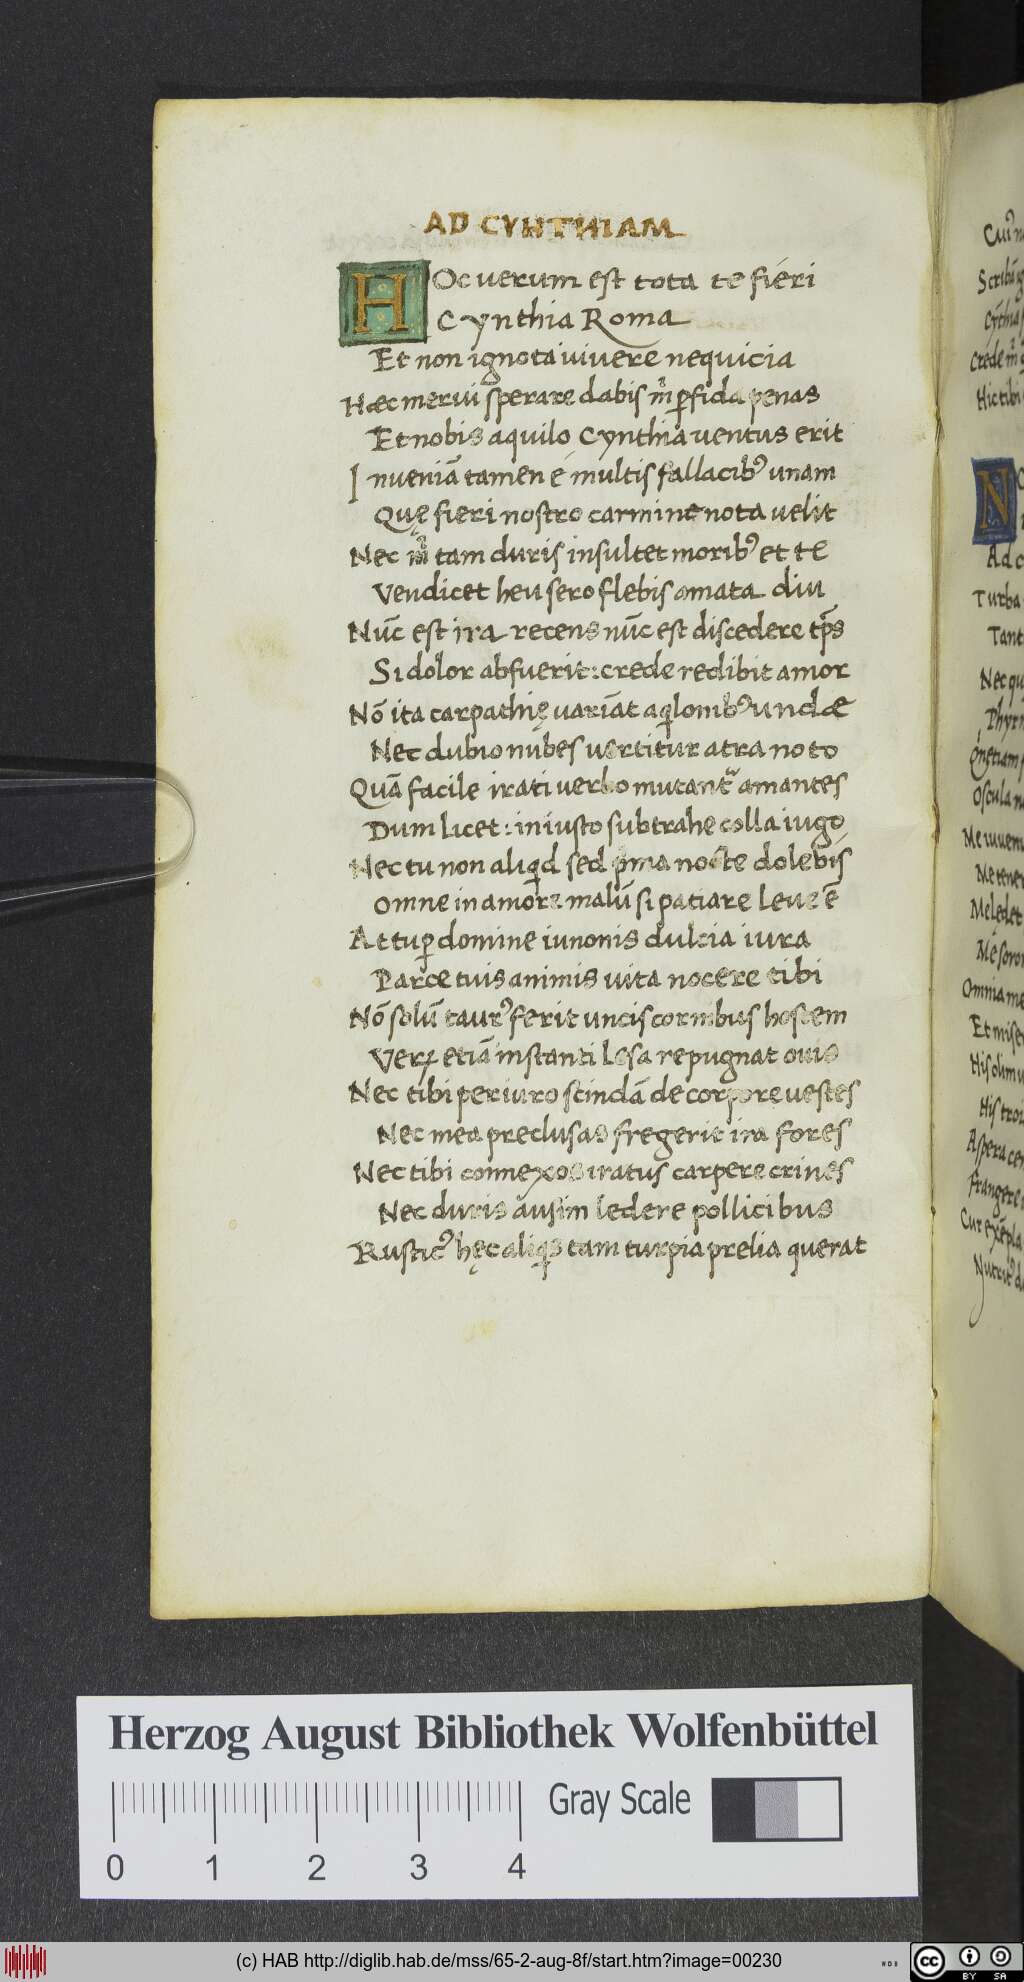 AD CYHTHIAM
HOc verum est tota te fieri
Cynthia Roma
Et non ignota vivere nequicia
Hæc merui sperare dabis m̊ ꝑfida penas
Et nobis aquilo Cynthia ventus erit
Inveniā tamen é multis fallacibꝰ unam
Quę fieri nostro carmine nota velit
Nec m̊ tam duris insultet moribꝰ et te
Vendicet heu sero flebis amata diu
Nūc est ira recens nūc est discedere tp̄s
Si dolor abfuerit: crede redibit amor
Nō ita carpathię variāt aqilonibꝰ undæ
Nec dubio nūbes vertitur atra noto
Quā facile irati verbo mutant᷑ amantes
Dum licet: iniusto subtrahe colla iugo
Nec tu non aliqͥd sed pͥma nocte dolebis
Omne in amore malū si patiare leve ē
At tu ꝑ domine iunonis dulcia iura
Parce tuis animis vita nocere tibi
Nō solū taurꝰ ferit uncis cornibus hostem
Veꝝ etiā instanti lesa repugnat ovis
Nec tibi periuro scindā de corpore vestes
Nec mea preclusas fregerit ira fores
Nec tibi connexos iratus carpere crines
Nec duris ausim ledere pollicibus
Rusticꝰ hęc aliqͥs tam turpia prelia querat
Scribā
Cynthia
Crede m̊
Hic tibi
N
Ad
Turba
Tant
Nec qu
Phyr
Oscula
Me iuven
Me tener
Me lędet
Me soror
Omnia me
Et mise
His olim
His troi
Aspera
Frangere
Cur exēpla
Nutritꝰ
Herzog August Bibliothek Wolfenbüttel
Gray Scale
0 1 2 3 4
(c) HAB http://diglib.hab.de/mss/65-2-aug-8f/start.htm?image=00230
WDB
cc BY SA